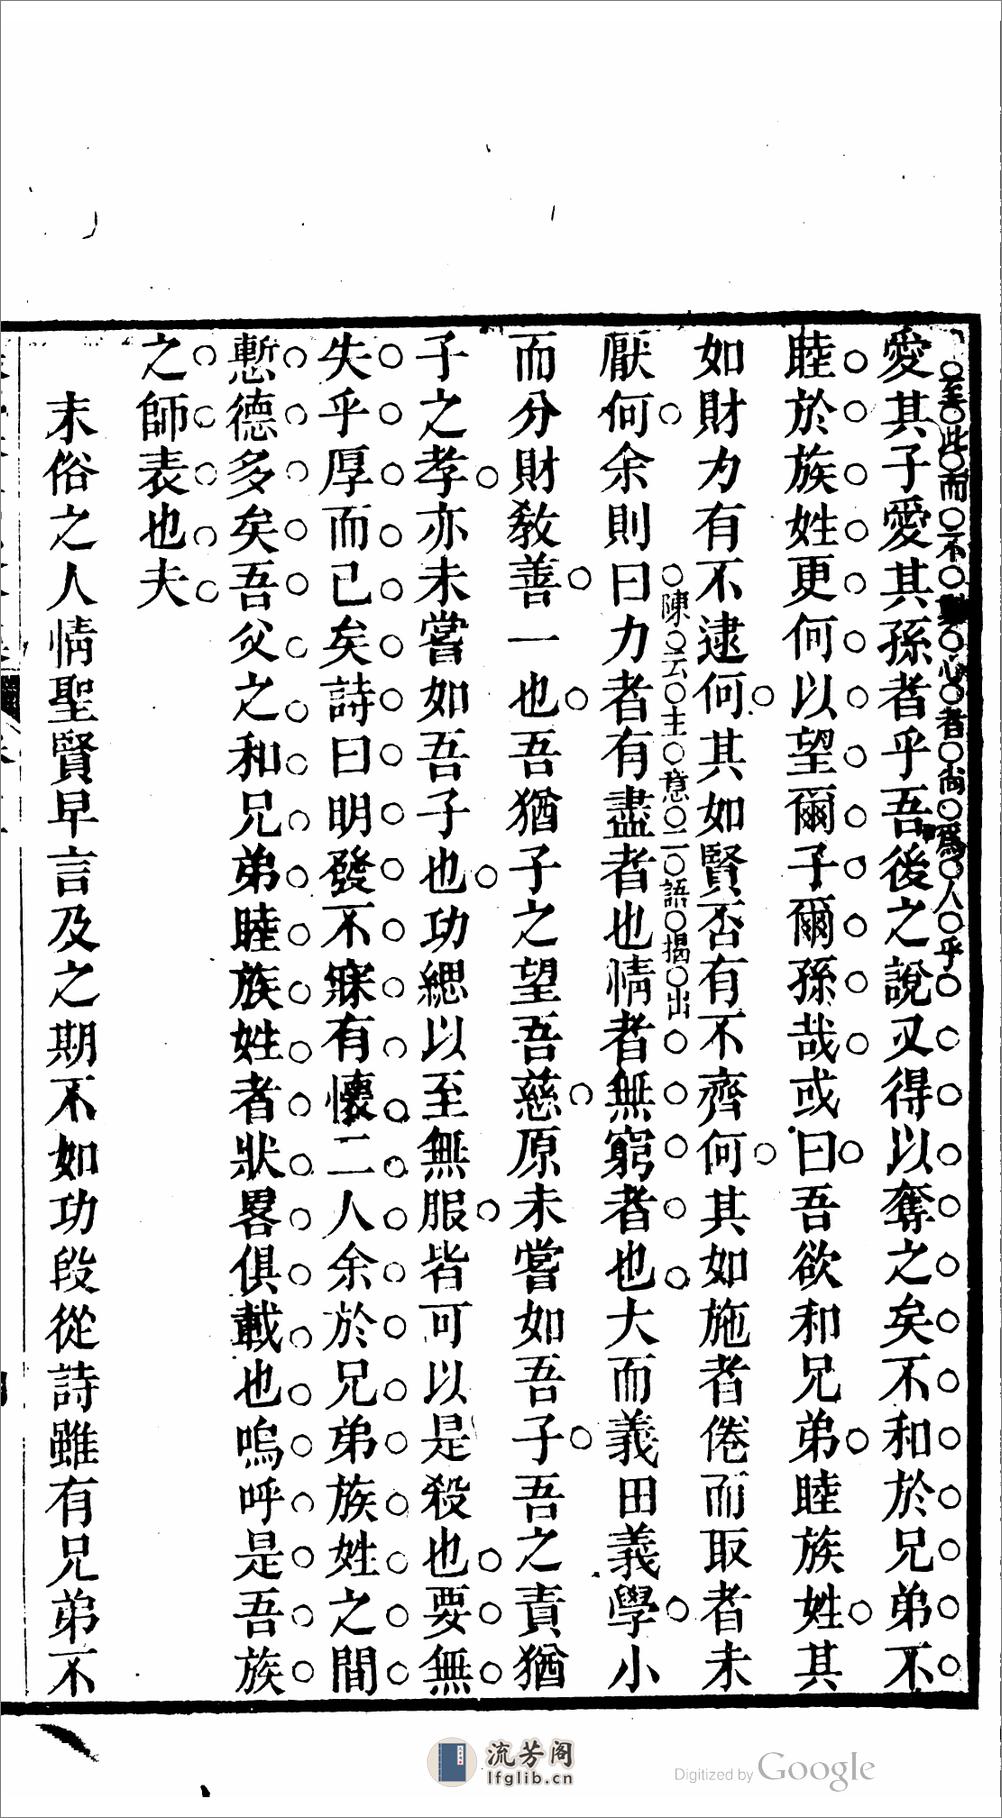 愛其子愛其孫者乎吾後之說又得以奪之矣不和於兄弟不
至此而不動心者尚為人乎
睦於族姓更何以望爾子爾孫哉或曰吾欲和兄弟睦族姓其
如財力有不逮何其如賢否有不齊何其如施者倦而取者未
陳云主意二語揭出
厭何余則曰力者有盡者也情者無窮者也大而義田義學小
而分財教善一也吾猶子之望吾慈原未嘗如吾子吾之責猶
子之孝亦未嘗如吾子也功緦以至無服皆可以是殺也要無
失乎厚而已矣詩曰明發不寐有懷二人余於兄弟族姓之間
慙德多矣吾父之和兄弟睦族姓者狀畧俱載也嗚呼是吾族
之師表也夫
末俗之人情聖賢早言及之期不如功段從詩雖有兄弟不
流芳阁
lfglib.cn
Digitized by Google